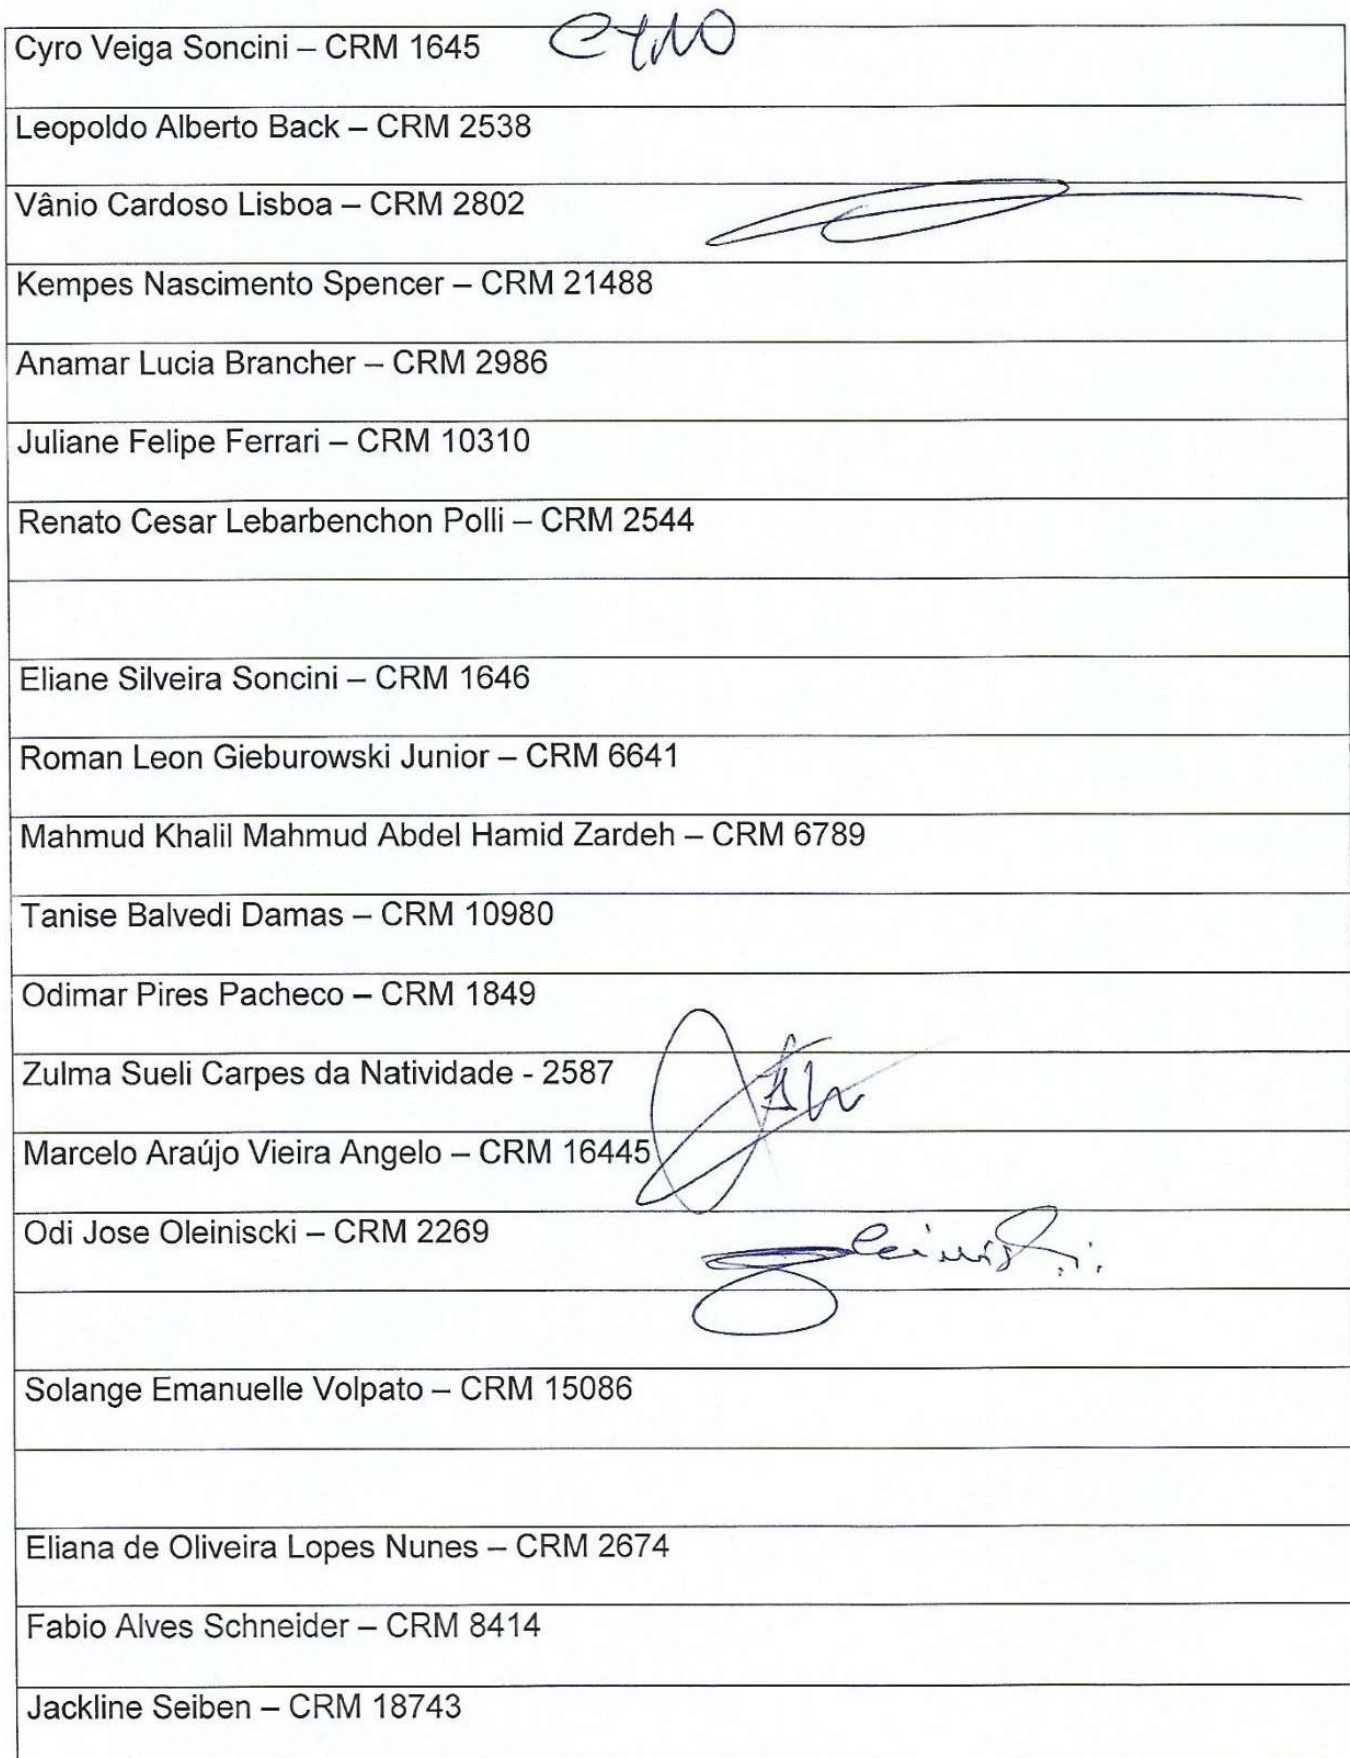 Cyro Veiga Soncini – CRM 1645 Cyro
Leopoldo Alberto Back – CRM 2538
Vânio Cardoso Lisboa – CRM 2802
Kempes Nascimento Spencer – CRM 21488
Anamar Lucia Brancher – CRM 2986
Juliane Felipe Ferrari – CRM 10310
Renato Cesar Lebarbenchon Polli – CRM 2544
Eliane Silveira Soncini – CRM 1646
Roman Leon Gieburowski Junior – CRM 6641
Mahmud Khalil Mahmud Abdel Hamid Zardeh – CRM 6789
Tanise Balvedi Damas – CRM 10980
Odimar Pires Pacheco – CRM 1849
Zulma Sueli Carpes da Natividade - 2587
Marcelo Araújo Vieira Angelo – CRM 16445
Odi Jose Oleiniscki – CRM 2269
Solange Emanuelle Volpato – CRM 15086
Eliana de Oliveira Lopes Nunes – CRM 2674
Fabio Alves Schneider – CRM 8414
Jackline Seiben – CRM 18743